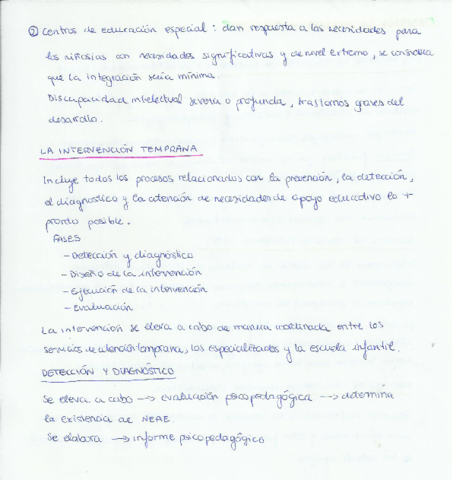 ② Centros de educación especial: dan respuesta a las necesidades para
los niños/as con necesidades significativas y de nivel extremo, se considera
que la integración sería mínima.
Discapacidad intelectual severa o profunda, trastornos graves del
desarrollo.
LA INTERVENCIÓN TEMPRANA
Incluye todos los procesos relacionados con la prevención, la detección,
el diagnóstico y la atención de necesidades de apoyo educativo lo +
pronto posible.
FASES
- Detección y diagnóstico
- Diseño de la intervención
- Ejecución de la intervención
- Evaluación
La intervención se lleva a cabo de manera coordinada entre los
servicios de atención temprana, los especializados y la escuela infantil.
DETECCIÓN Y DIAGNÓSTICO
Se lleva a cabo → evaluación psicopedagógica → determina
la existencia de NEAE.
Se elabora → informe psicopedagógico